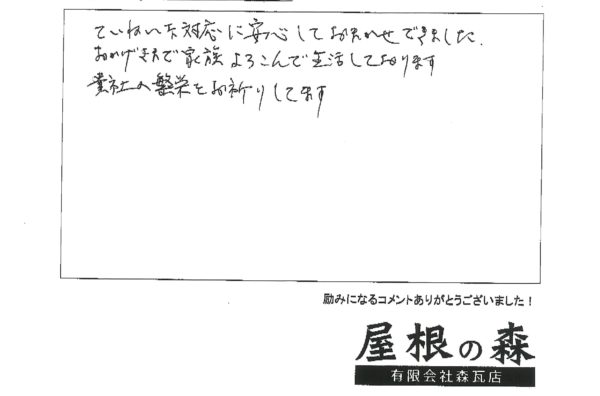 ていねいな対応に安心しておまかせできました.
おかげさまで家族よろこんで生活しております
貴社の繁栄をお祈りしてます
励みになるコメントありがとうございました！
屋根の森
有限会社森瓦店